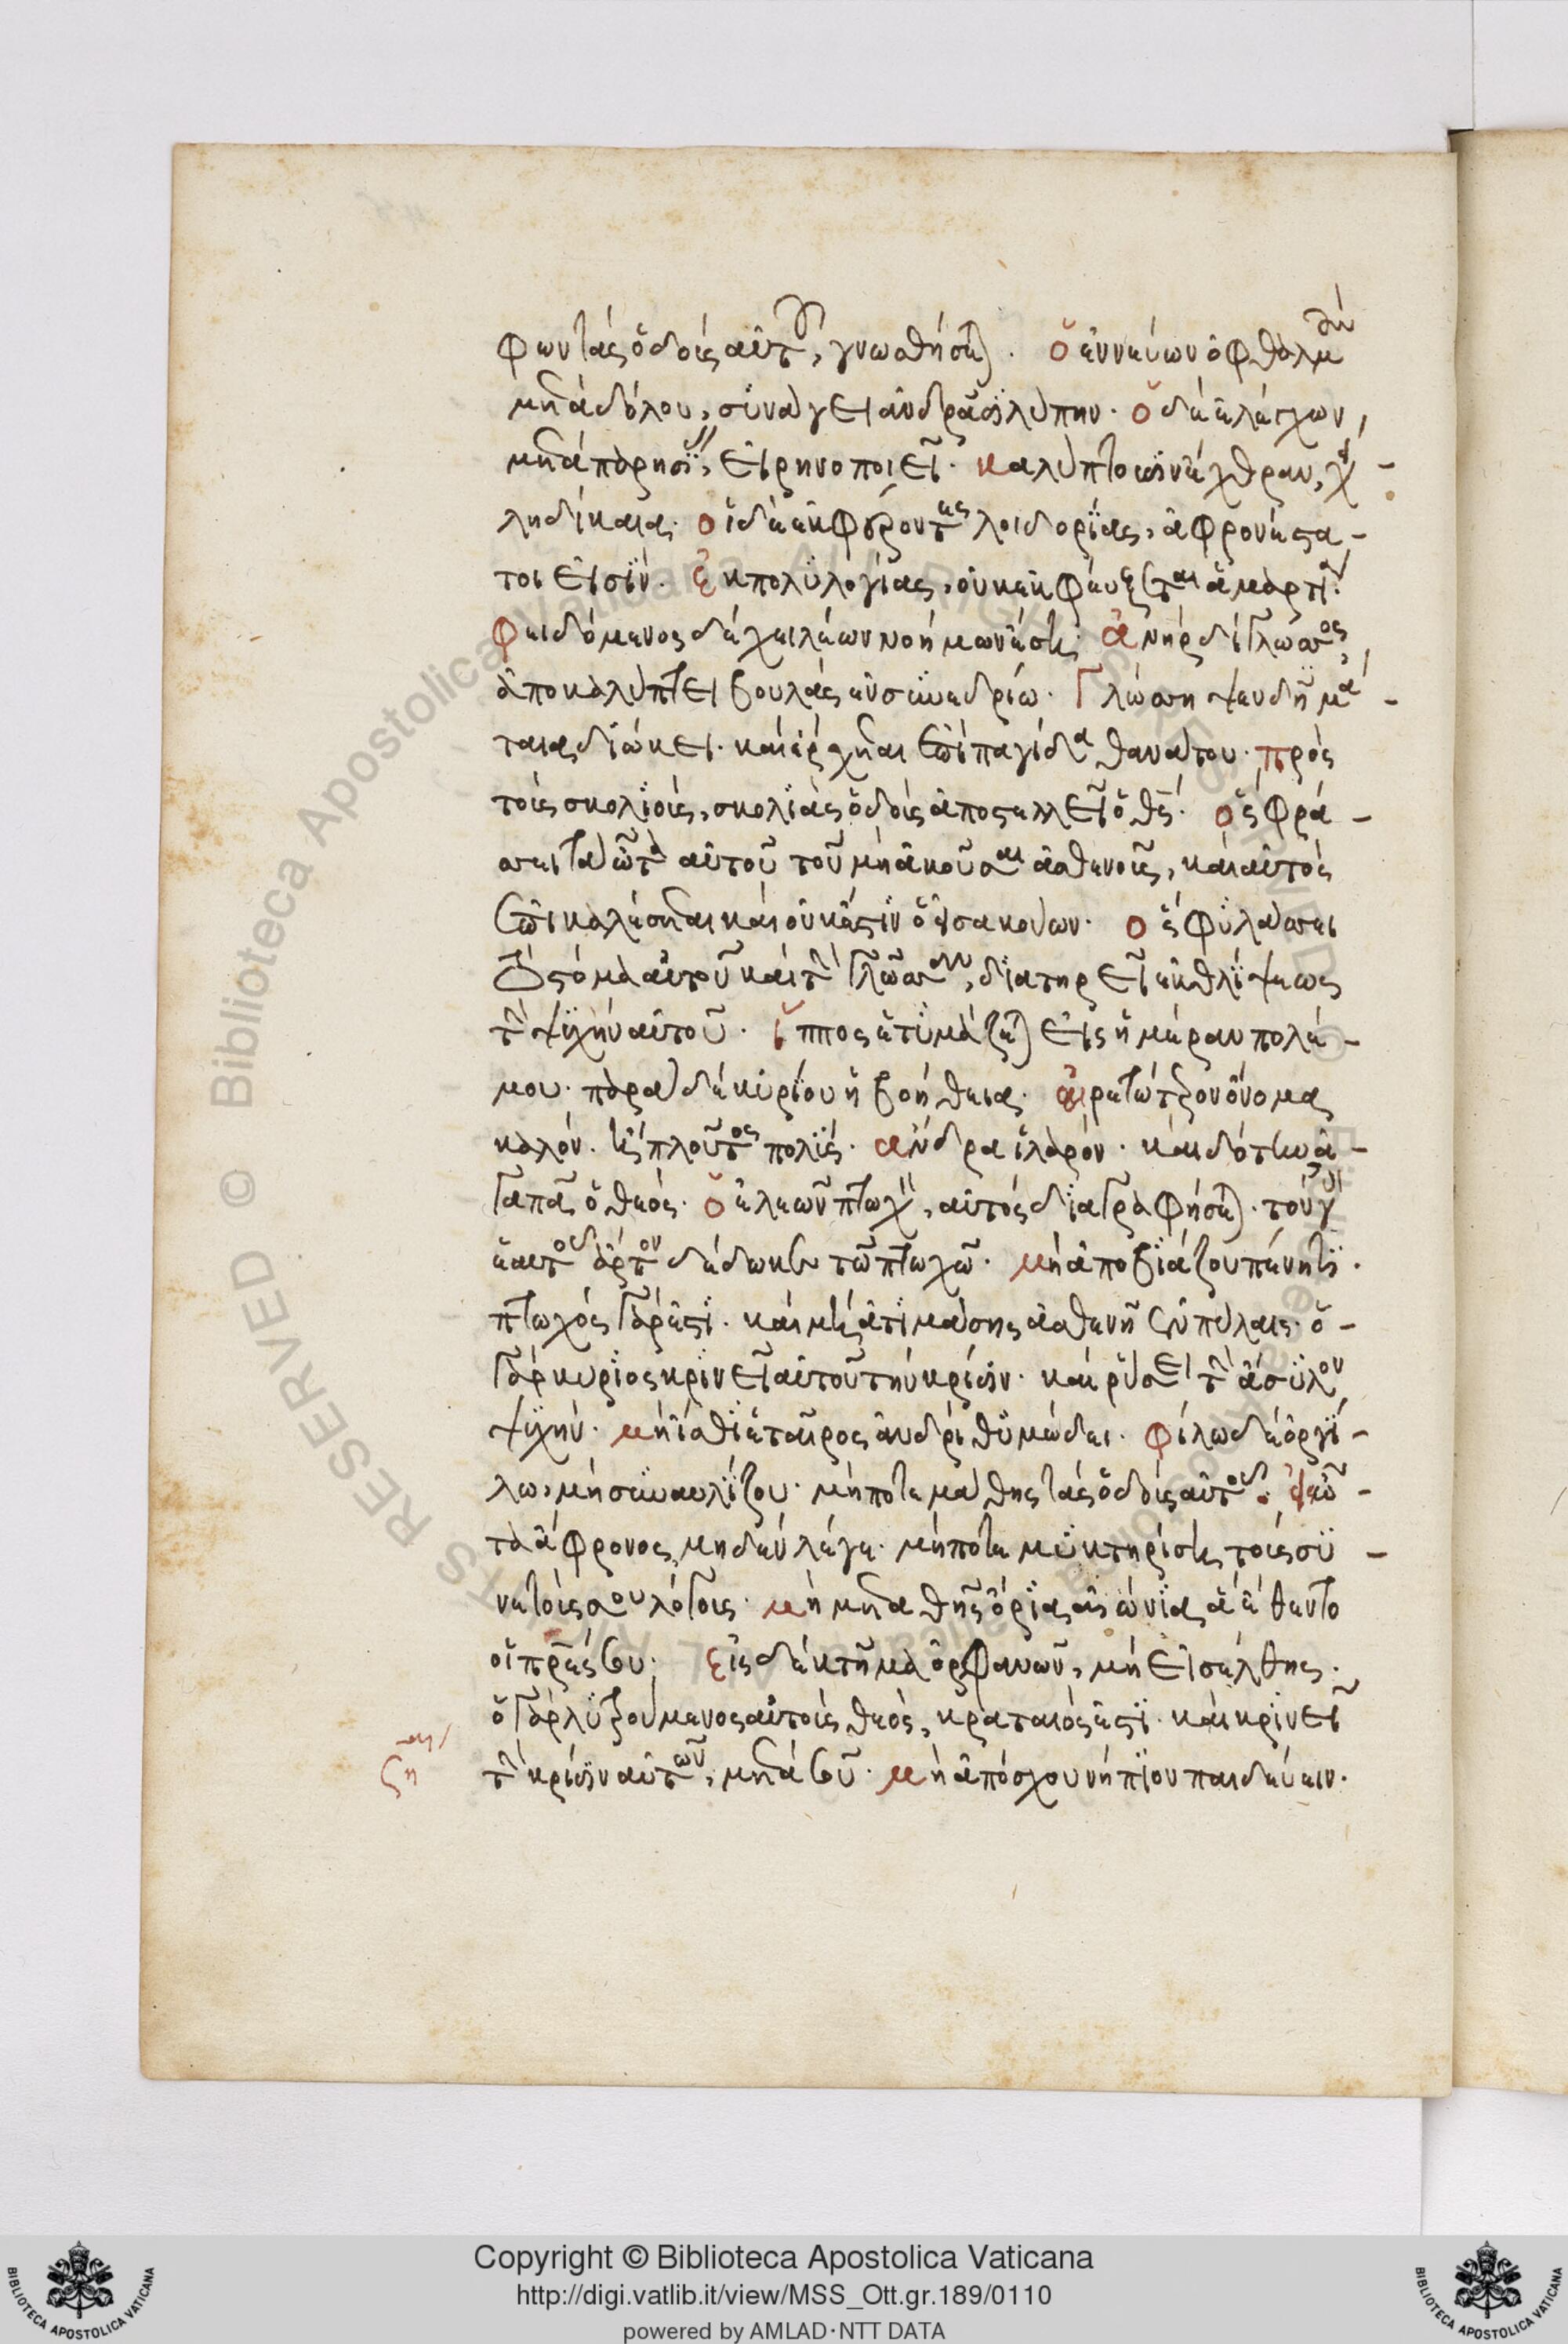 φων τὰς ὁδοὺς αὐτοῦ, γνωσθήσεται. ὁ ἐννεύων ὀφθαλμῶ
μετὰ δόλου, συνάγει ἀνδράσι λύπην. ὁ δὲ ἐλέγχων,
μετὰ παρησίας, εἰρηνοποιεῖ. καλύπτουσιν ἔχθραν, χεί-
λη δίκαια. οἱ δὲ ἐκφέροντες λοιδορίας, ἀφρονέστα-
τοι εἰσίν. ἐκ πολυλογίας, οὐκ ἐκφεύξεται ἁμαρτίαν.
φειδόμενος δὲ χειλέων νοήμων ἔση. ἀνὴρ δίγλωσσος,
ἀποκαλύπτει βουλὰς ἐν συνεδρίω. γλῶσση ψευδῆ μα-
ταια διώκει. καὶ ἔρχεται ἐπὶ παγίδα θανάτου. πρὸς
τοὺς σκολιοὺς, σκολιὰς ὁδοὺς ἀποστελλεῖ ὁ θς. ὃς φρά-
σσει τὰ ὦτα αὐτοῦ τοῦ μὴ ἀκοῦσαι ἀσθενοῦς, καὶ αὐτὸς
ἐπικαλέσηται καὶ οὐκ ἔστιν ὁ εἰσακούων. ὃς φυλάσσει
τὸ στόμα αὐτοῦ καὶ τὴν γλῶσσαν, διατηρεῖ ἐκ θλίψεως
τὴν ψυχὴν αὐτοῦ. ἵππος ἑτοιμάζεται εἰς ἡμέραν πολέ-
μου. παρὰ δὲ κυρίου ἡ βοήθεια. αἱρετώτερον ὄνομα
καλόν. ἢ πλοῦτος πολύς. ἄνδρα ἱλαρὸν. καὶ δότην ἀ-
γαπᾶ ὁ θεός. ὁ ἐλεῶν πτωχοὺς, αὐτὸς διατραφήσεται. τοῦ γὰρ
ἑαυτοῦ ἄρτον δέδωκεν τῶ πτωχῶ. μὴ ἀποβιάζου πένητι.
πτωχὸς γάρ ἐστι. καὶ μὴ ἀτιμάσης ἀσθενῆ ἐν πύλαις. ὁ
γὰρ κύριος κρινεῖ αὐτοῦ τὴν κρίσιν. καὶ ῥύσει τὴν ἄσυλον
ψυχήν. μὴ ἴσθι ἑταῖρος ἀνδρὶ θυμώδει. φίλω δὲ ὀργί-
λω, μὴ συναυλίζου. μήποτε μάθης τὰς ὁδοὺς αὐτοῦ. εἰς ὦ-
τα ἄφρονος μηδὲν λέγε. μήποτε μυκτηρίση τοὺς συ-
νετούς σου λόγους. μὴ μεταθῆς ὅρια αἰώνια ἃ ἔθεντο
οἱ πρές σου. εἰς δὲ κτῆμα ὀρφανῶν, μὴ εἰσέλθης.
ὁ γὰρ λυτρούμενος αὐτοὺς θεὸς, κραταιός ἐστι. καὶ κρινεῖ
τὴν κρίσιν αὐτῶν, μετὰ σοῦ. μὴ ἀπόσχου νήπιον παιδεύειν.
Copyright © Biblioteca Apostolica Vaticana
http://digi.vatlib.it/view/MSS_Ott.gr.189/0110
powered by AMLAD·NTT DATA